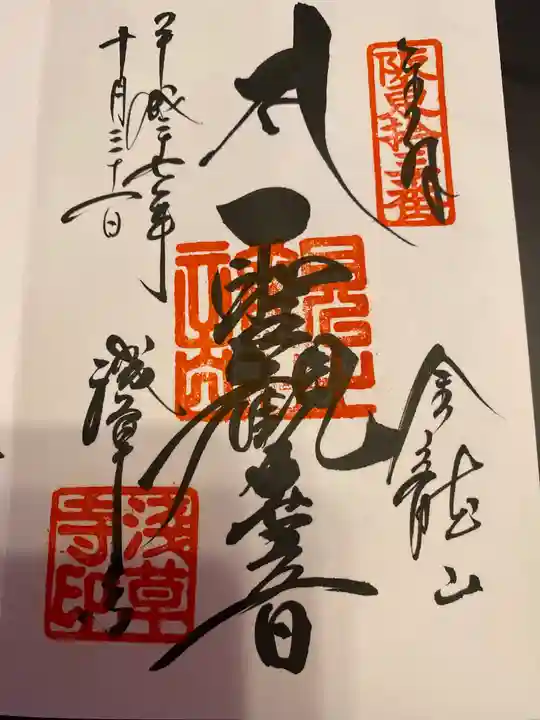 奉拝
阪東拾三番
金龍山
聖観世音
平成二十七年
十月三十一日
浅草寺
浅草寺印